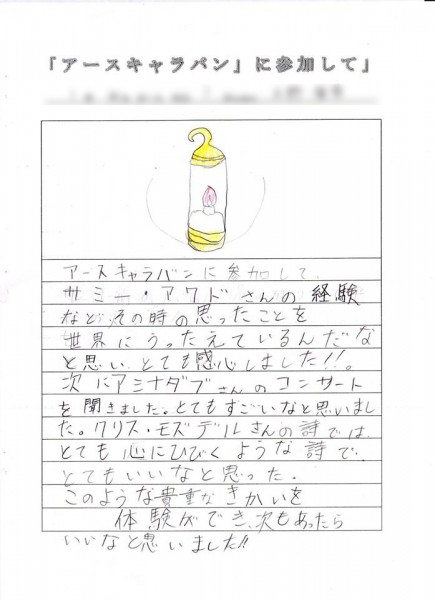 「アースキャラバン」に参加して」
アースキャラバンに参加して、
サミー・アワドさんの経験
など、その時の思ったことを
世界にうったえているんだな
と思い、とても感心しました!!。
次にアミナダブさんのコンサート
を聞きました。とてもすごいなと思いまし
た。クリス・モズデルさんの詩では、
とても心にひびくような詩で、
とてもいいなと思った.
このような貴重なきかいを
体験ができ、次もあったら
いいなと思いました!!